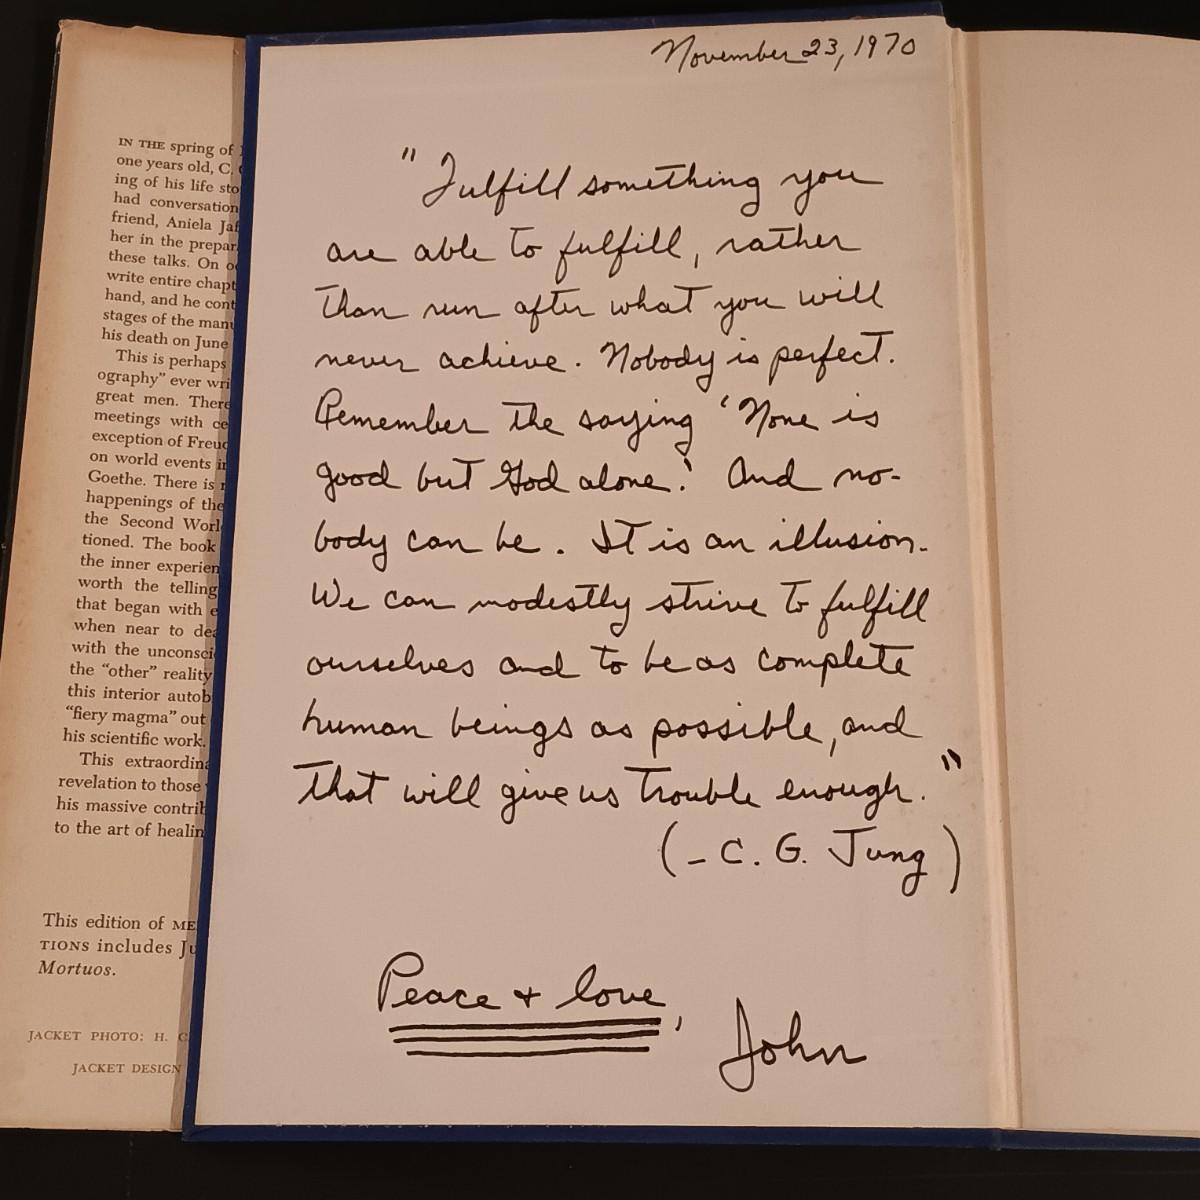 IN THE spring of
one years old, C.
ing of his life sto
had conversation
friend, Aniela Jaf
her in the prepar
these talks. On o
write entire chapt
hand, and he cont
stages of the manu
his death on June
This is perhaps
ography” ever wri
great men. There
meetings with ce
exception of Freud
on world events i
Goethe. There is
happenings of the
the Second Worl
tioned. The book
the inner experien
worth the telling
that began with e
when near to dea
with the unconsci
the “other” reality
this interior autob
“fiery magma” out
his scientific work.
This extraordina
revelation to those
his massive contrib
to the art of healin
This edition of ME
TIONS includes Ju
Mortuos.
JACKET PHOTO: H. C
JACKET DESIGN
November 23, 1970
"Fulfill something you
are able to fulfill, rather
than run after what you will
never achieve. Nobody is perfect.
Remember the saying 'None is
good but God alone.' And no-
body can be. It is an illusion.
We can modestly strive to fulfill
ourselves and to be as complete
human beings as possible, and
that will give us trouble enough."
(- C. G. Jung)
Peace + love,
John